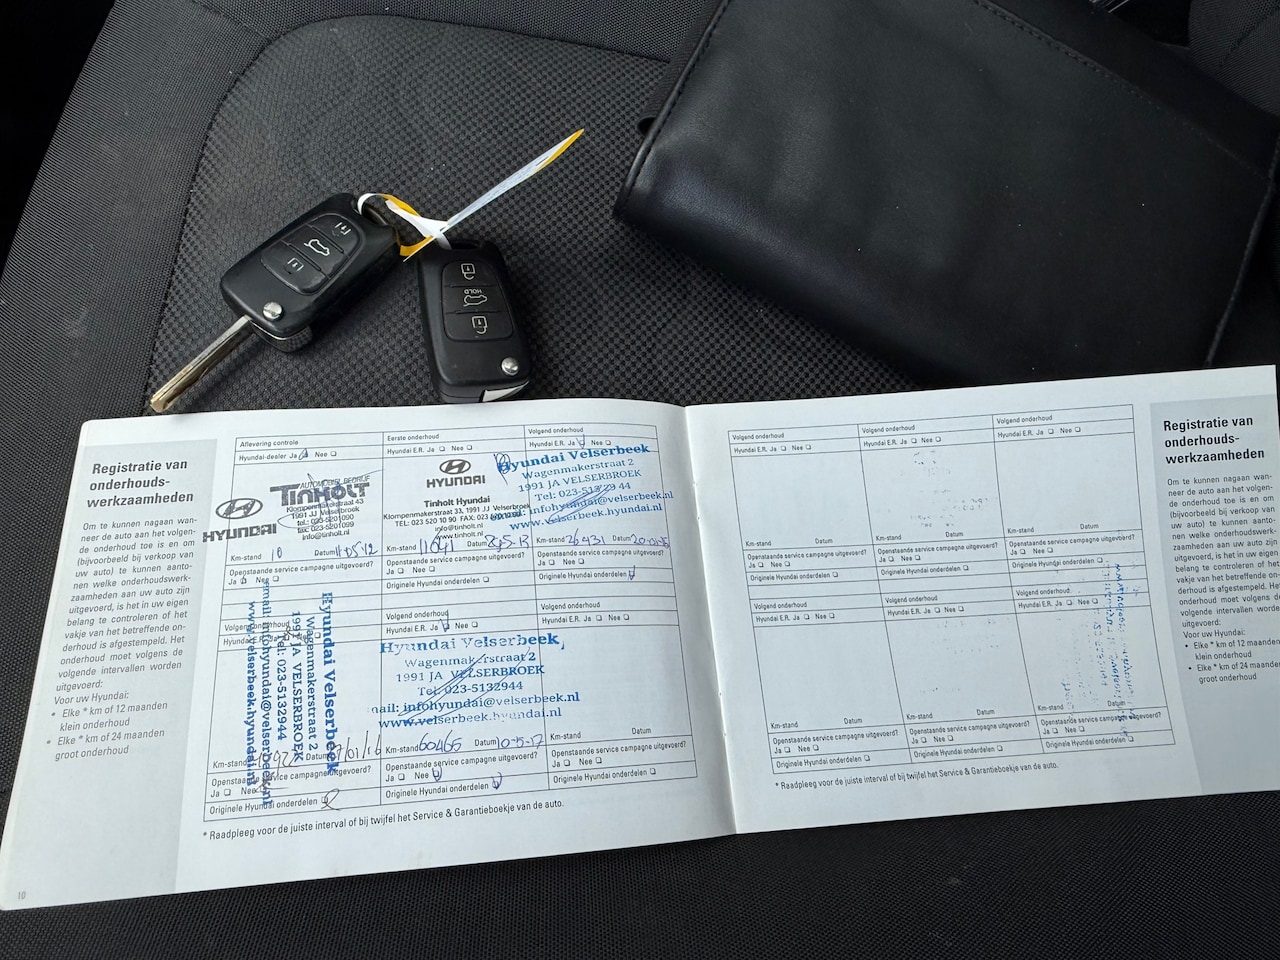 HOLD
Registratie van
onderhouds-
werkzaamheden
Om te kunnen nagaan wan-
neer de auto aan het volgen-
de onderhoud toe is en om
(bijvoorbeeld bij verkoop van
uw auto) te kunnen aanto-
nen welke onderhoudswerk-
zaamheden aan uw auto zijn
uitgevoerd, is het in uw eigen
belang te controleren of het
vakje van de betreffende on-
derhoud is afgestempeld. Het
onderhoud moet volgens de
volgende intervallen worden
uitgevoerd:
Voor uw Hyundai:
• Elke * km of 12 maanden
klein onderhoud
• Elke * km of 24 maanden
groot onderhoud
10
Aflevering controle
Hyundai-dealer Ja Nee
AUTOMOBIELBEDRIJF
TINHOLT
Klompenmakerstraat 43
1991 JJ Velserbroek
tel: 023-5201090
fax: 023-5201099
info@tinholt.nl
HYUNDAI
Km-stand 10 Datum 11-05-12
Openstaande service campagne uitgevoerd?
Ja Nee
Eerste onderhoud
Hyundai E.R. Ja Nee
HYUNDAI
Tinholt Hyundai
Klompenmakerstraat 33, 1991 JJ Velserbroek
TEL: 023 520 10 90 FAX: 023
info@tinholt.nl
www.tinholt.nl
Km-stand 11041 Datum
Openstaande service campagne uitgevoerd?
Ja Nee
Originele Hyundai onderdelen
Volgend onderhoud
Hyundai E.R. Ja Nee
Hyundai Velserbeek
Wagenmakerstraat 2
1991 JA VELSERBROEK
Tel: 023-5132944
email: infohyundai@velserbeek.nl
www.velserbeek.hyundai.nl
Km-stand 26431 Datum
Openstaande service campagne uitgevoerd?
Ja Nee
Originele Hyundai onderdelen
Volgend onderhoud
Hyundai E.R. Ja
Hyundai Velserbeek
Wagenmakerstraat 2
1991 JA VELSERBROEK
Tel: 023-5132944
email: infohyundai@velserbeek.nl
www.velserbeek.hyundai.nl
Km-stand Datum
Openstaande service campagne uitgevoerd?
Ja Nee
Originele Hyundai onderdelen
Volgend onderhoud
Hyundai E.R. Ja Nee
Hyundai Velserbeek
Wagenmakerstraat 2
1991 JA VELSERBROEK
Tel: 023-5132944
mail: infohyundai@velserbeek.nl
www.velserbeek.hyundai.nl
Km-stand 60465 Datum 10-5-17
Openstaande service campagne uitgevoerd?
Ja Nee
Originele Hyundai onderdelen
Volgend onderhoud
Hyundai E.R. Ja Nee
Km-stand Datum
Openstaande service campagne uitgevoerd?
Ja Nee
Originele Hyundai onderdelen
* Raadpleeg voor de juiste interval of bij twijfel het Service & Garantieboekje van de auto.
Volgend onderhoud
Hyundai E.R. Ja Nee
Km-stand Datum
Openstaande service campagne uitgevoerd?
Ja Nee
Originele Hyundai onderdelen
Volgend onderhoud
Hyundai E.R. Ja Nee
Km-stand Datum
Openstaande service campagne uitgevoerd?
Ja Nee
Originele Hyundai onderdelen
Volgend onderhoud
Hyundai E.R. Ja Nee
Km-stand Datum
Openstaande service campagne uitgevoerd?
Ja Nee
Originele Hyundai onderdelen
Volgend onderhoud
Hyundai E.R. Ja Nee
Km-stand Datum
Openstaande service campagne uitgevoerd?
Ja Nee
Originele Hyundai onderdelen
Volgend onderhoud
Hyundai E.R. Ja Nee
Km-stand Datum
Openstaande service campagne uitgevoerd?
Ja Nee
Originele Hyundai onderdelen
Volgend onderhoud
Hyundai E.R. Ja Nee
Km-stand Datum
Openstaande service campagne uitgevoerd?
Ja Nee
Originele Hyundai onderdelen
* Raadpleeg voor de juiste interval of bij twijfel het Service & Garantieboekje van de auto.
Registratie van
onderhouds-
werkzaamheden
Om te kunnen nagaan wan-
neer de auto aan het volgen-
de onderhoud toe is en om
(bijvoorbeeld bij verkoop van
uw auto) te kunnen aanto-
nen welke onderhoudswerk-
zaamheden aan uw auto zijn
uitgevoerd, is het in uw eigen
belang te controleren of het
vakje van de betreffende on-
derhoud is afgestempeld. Het
onderhoud moet volgens de
volgende intervallen worden
uitgevoerd:
Voor uw Hyundai:
• Elke * km of 12 maanden
klein onderhoud
• Elke * km of 24 maanden
groot onderhoud